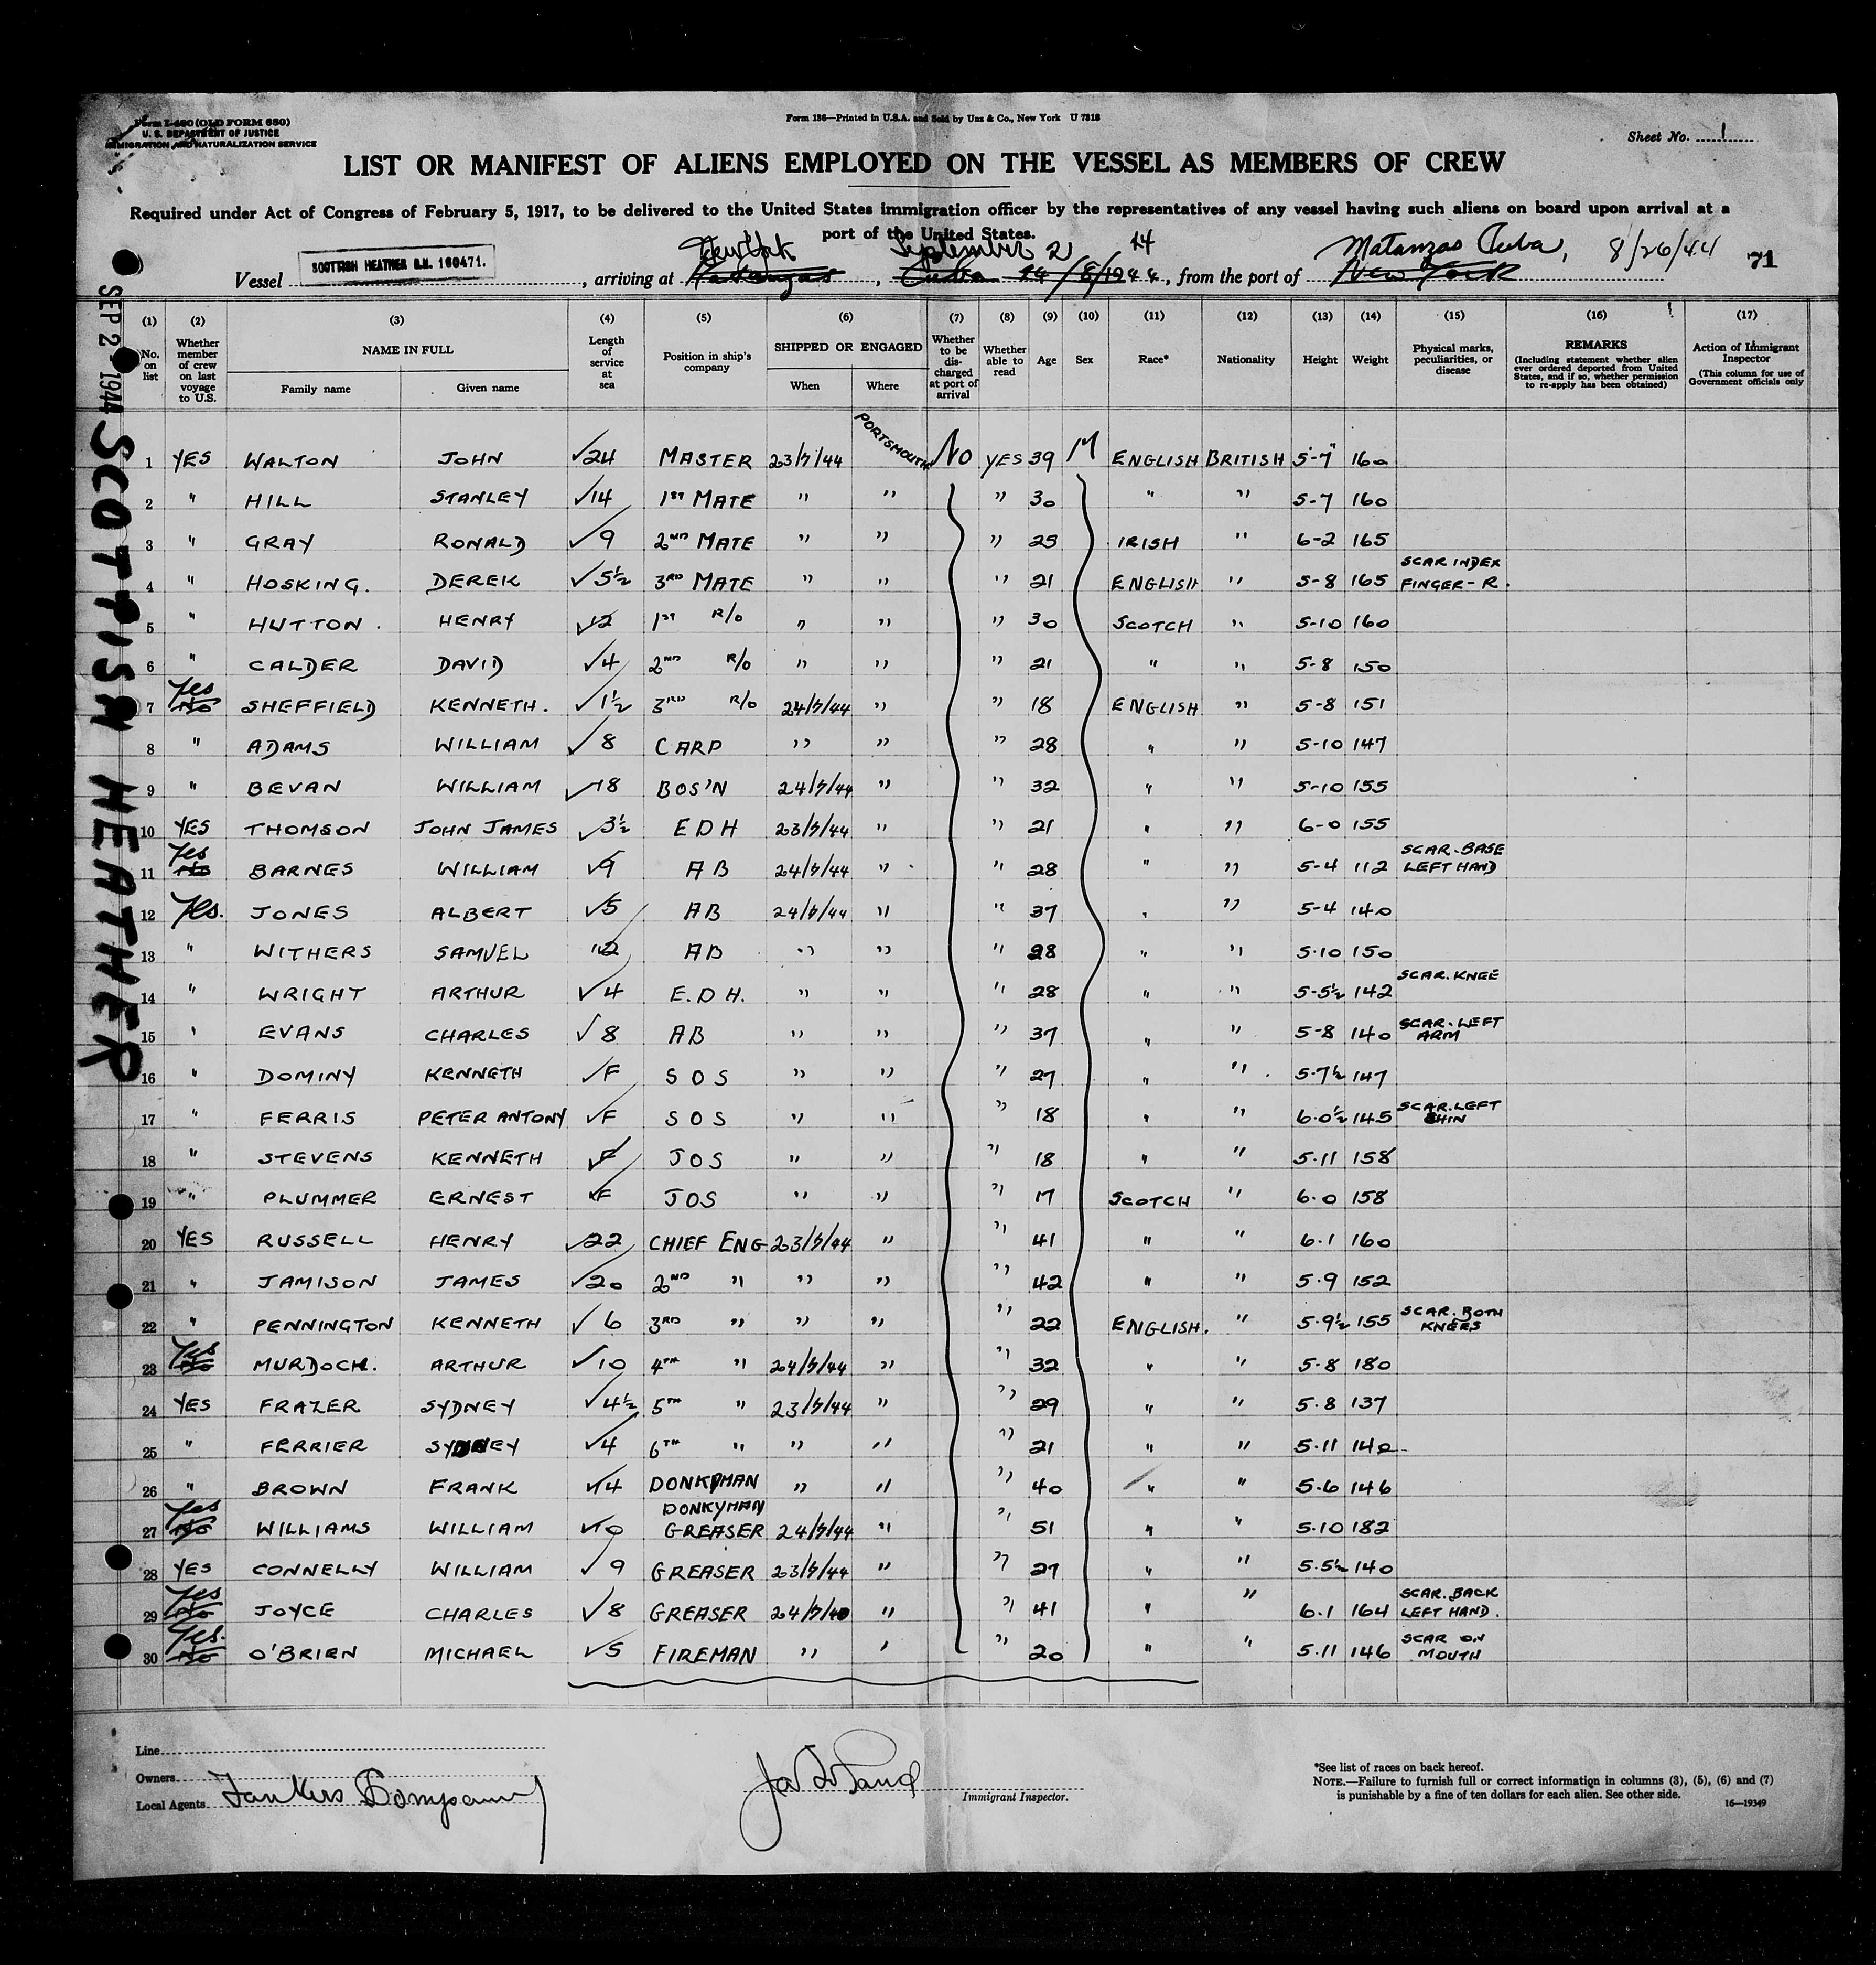 Form I-480 (OLD FORM 680)
U. S. DEPARTMENT OF JUSTICE
IMMIGRATION AND NATURALIZATION SERVICE
Form 186—Printed in U.S.A. and Sold by Unz & Co., New York U 7318
Sheet No. 1
LIST OR MANIFEST OF ALIENS EMPLOYED ON THE VESSEL AS MEMBERS OF CREW
Required under Act of Congress of February 5, 1917, to be delivered to the United States immigration officer by the representatives of any vessel having such aliens on board upon arrival at a
port of the United States.
New York September 2 44 Matanzas Cuba, 8/26/44 71
Vessel SCOTTISH HEATHER O.N. 160471. , arriving at Matanzas , Cuba 14/8/1944 , from the port of New York
SEP 2 1944 SCOTTISH HEATHER
(1) (2) (3) (4) (5) (6) (7) (8) (9) (10) (11) (12) (13) (14) (15) (16) (17)
No. on list Whether member of crew on last voyage to U.S. NAME IN FULL Family name Given name Length of service at sea Position in ship's company SHIPPED OR ENGAGED When Where Whether to be discharged at port of arrival Whether able to read Age Sex Race* Nationality Height Weight Physical marks, peculiarities, or disease REMARKS (Including statement whether alien ever ordered deported from United States, and if so, whether permission to re-apply has been obtained) Action of Immigrant Inspector (This column for use of Government officials only
1 YES WALTON JOHN √24 MASTER 23/7/44 PORTSMOUTH No YES 39 M ENGLISH BRITISH 5'-7" 160
2 " HILL STANLEY √14 1ST MATE " " " 30 " " 5-7 160
3 " GRAY RONALD √9 2ND MATE " " " 25 IRISH " 6-2 165
4 " HOSKING. DEREK √5½ 3RD MATE " " " 21 ENGLISH " 5-8 165 SCAR INDEX FINGER-R.
5 " HUTTON. HENRY √12 1ST R/o " " " 30 SCOTCH " 5-10 160
6 " CALDER DAVID √4 2ND R/o " " " 21 " " 5-8 150
7 Yes No SHEFFIELD KENNETH. √1½ 3RD R/o 24/7/44 " " 18 ENGLISH " 5-8 151
8 " ADAMS WILLIAM √8 CARP " " " 28 " " 5-10 147
9 " BEVAN WILLIAM √18 BOS'N 24/7/44 " " 32 " " 5-10 155
10 YES THOMSON JOHN JAMES √3½ EDH 23/7/44 " " 21 " " 6-0 155
11 Yes No BARNES WILLIAM √9 AB 24/7/44 " " 28 " " 5-4 112 SCAR.BASE LEFT HAND
12 Yes. JONES ALBERT √5 AB 24/7/44 " " 37 " " 5-4 140
13 " WITHERS SAMUEL 12 AB " " " 28 " " 5.10 150
14 " WRIGHT ARTHUR √4 E.D H. " " " 28 " " 5-5½ 142 SCAR.KNEE
15 " EVANS CHARLES √8 AB " " " 37 " " 5-8 140 SCAR.LEFT ARM
16 " DOMINY KENNETH √F S O S " " " 27 " " 5-7½ 147
17 " FERRIS PETER ANTONY √F S O S " " " 18 " " 6.0½ 145 SCAR.LEFT SHIN
18 " STEVENS KENNETH √F JOS " " " 18 " " 5.11 158
19 " PLUMMER ERNEST √F JOS " " " 17 SCOTCH " 6.0 158
20 YES RUSSELL HENRY √22 CHIEF ENG 23/7/44 " " 41 " " 6.1 160
21 " JAMISON JAMES √20 2ND " " " " 42 " " 5.9 152
22 " PENNINGTON KENNETH √6 3RD " " " " 22 ENGLISH. " 5.9½ 155 SCAR.BOTH KNEES
23 Yes No MURDOCH. ARTHUR √10 4TH " 24/7/44 " " 32 " " 5-8 180
24 YES FRAZER SYDNEY √4½ 5TH " 23/7/44 " " 29 " " 5.8 137
25 " FERRIER SYDNEY √4 6TH " " " " 21 " " 5.11 140
26 " BROWN FRANK √14 DONKYMAN " " " 40 " " 5.6 146
27 Yes No WILLIAMS WILLIAM √10 DONKYMAN GREASER 24/7/44 " " 51 " " 5.10 182
28 YES CONNELLY WILLIAM √9 GREASER 23/7/44 " " 27 " " 5.5½ 140
29 Yes No JOYCE CHARLES √8 GREASER 24/7/40 " " 41 " " 6.1 164 SCAR.BACK LEFT HAND.
30 Yes. No O'BRIEN MICHAEL √5 FIREMAN " " " 20 " " 5.11 146 SCAR ON MOUTH
Line
Owners
Local Agents Tankers Company
Immigrant Inspector.
*See list of races on back hereof.
NOTE.—Failure to furnish full or correct information in columns (3), (5), (6) and (7)
is punishable by a fine of ten dollars for each alien. See other side.
16—19349